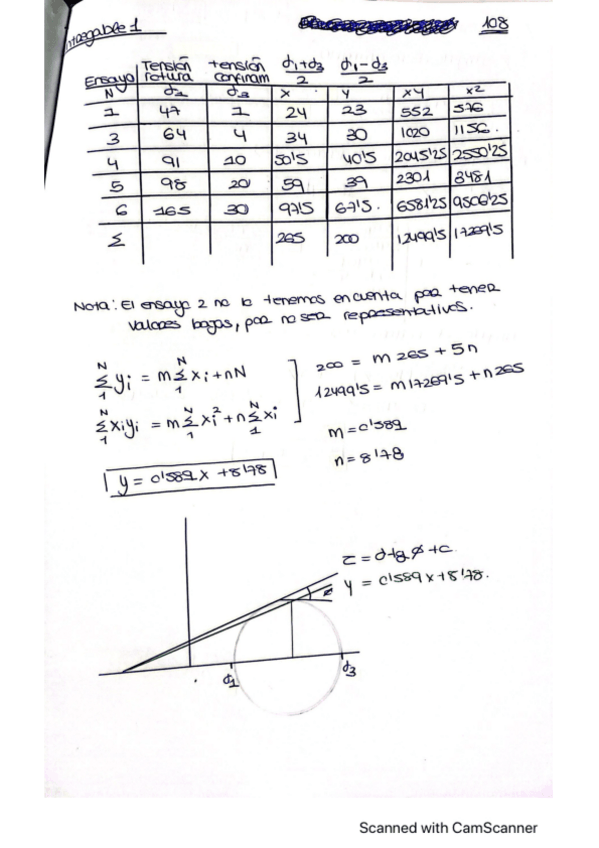 Entregable 1
108
Ensayo Tensión rotura tensión confinam σ1+σ3/2 σ1-σ3/2
N σ1 σ3 x y xy x2
1 47 1 24 23 552 576
3 64 4 34 30 1020 1156.
4 91 10 50'5 40'5 2045'25 2550'25
5 98 20 59 39 2301 3481
6 165 30 97'5 67'5. 6581'25 9506'25
Σ 265 200 12499'5 17269'5
Nota: El ensayo 2 no lo tenemos en cuenta por tener
valores bajos, por no ser representativos.
N Σ 1 yi = m N Σ 1 xi + nN
N Σ 1 xiyi = m N Σ 1 xi² + n N Σ 1 xi
200 = m 265 + 5n
12499'5 = m 17269'5 + n 265
m = 0'589
n = 8'78
y = 0'589 x + 8'78
τ = σ tg φ + c
y = 0'589 x + 8'78.
σ1
σ3
Scanned with CamScanner